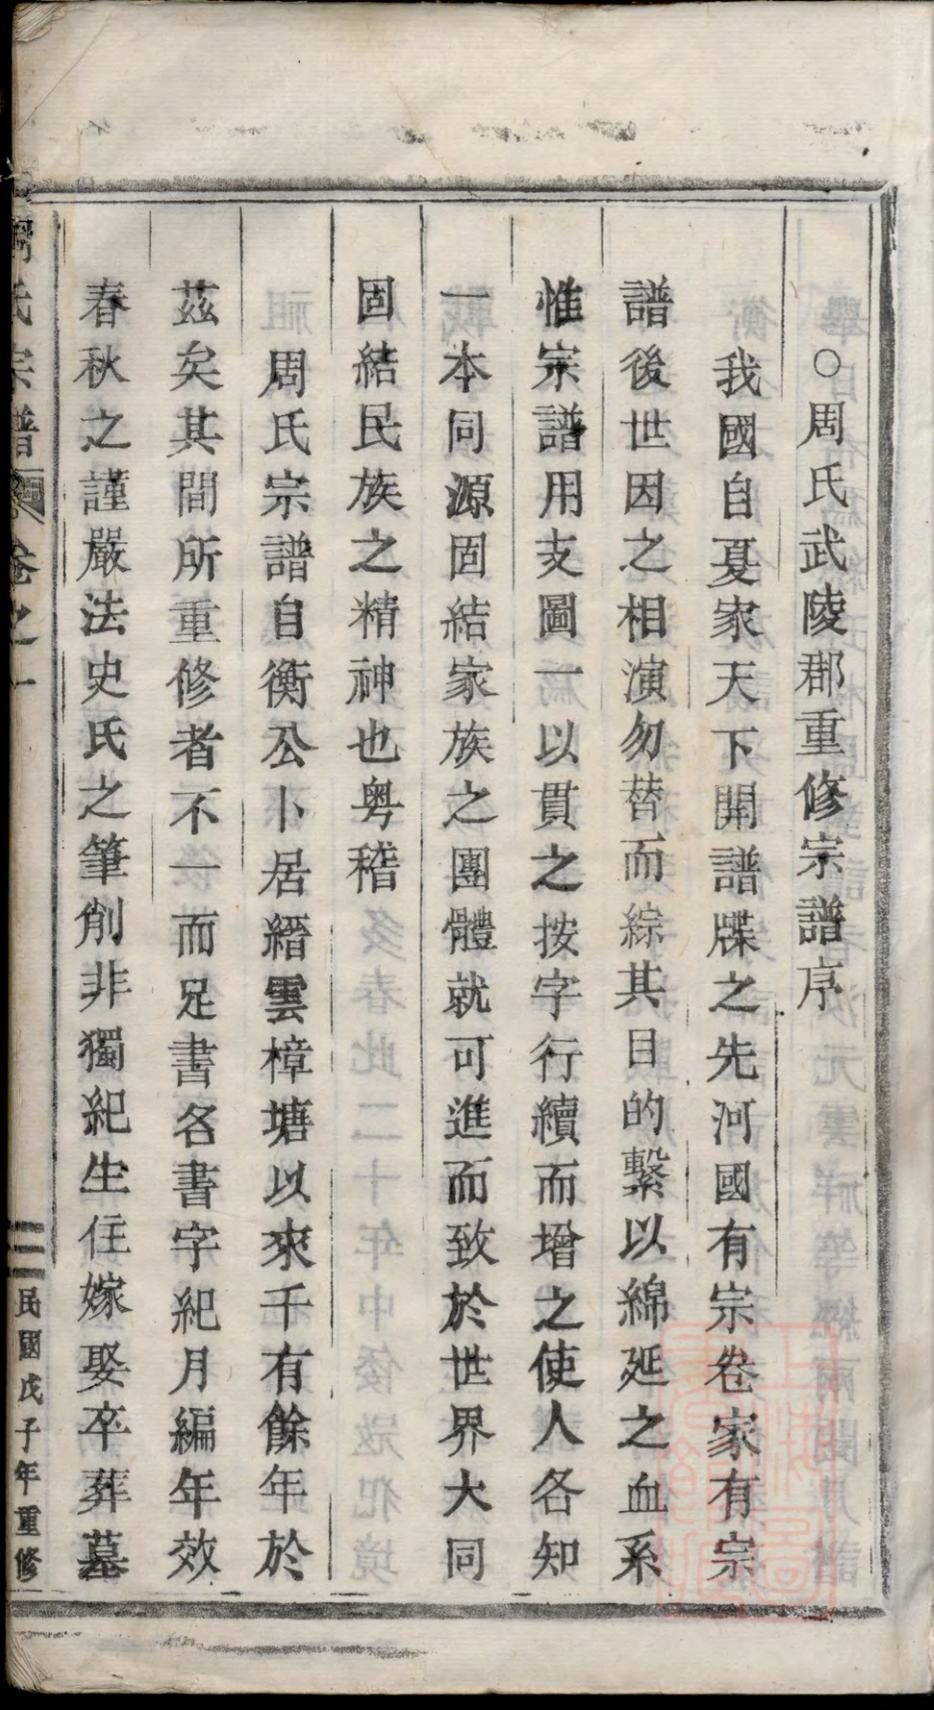 ○周氏武陵郡重修宗譜序
我國自夏家天下開譜牒之先河國有宗卷家有宗
譜後世因之相演勿替而綜其目的繫以綿延之血系
惟宗譜用支圖一以貫之按字行續而增之使人各知
一本同源固結家族之團體就可進而致於世界大同
固結民族之精神也粤稽
周氏宗譜自衡公卜居縉雲樟塘以來千有餘年於
茲矣其間所重修者不一而足書名書字紀月編年效
春秋之謹嚴法史氏之筆削非獨紀生住嫁娶卒葬墓
周氏宗譜 卷之一
民國戊子年重修